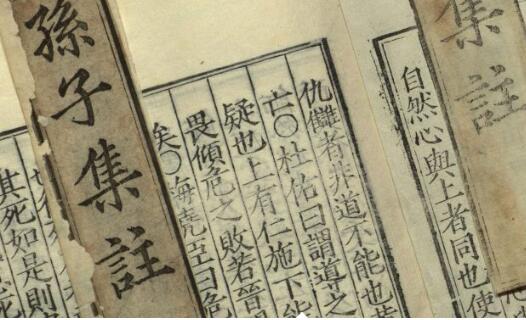 集註
自然心與上者同也使
仇讎者非道不能也
亡〇杜佑曰謂導之
疑也上有仁施下能
畏傾危之敗若晉
矣〇曰危
孫子集註
其死如是則